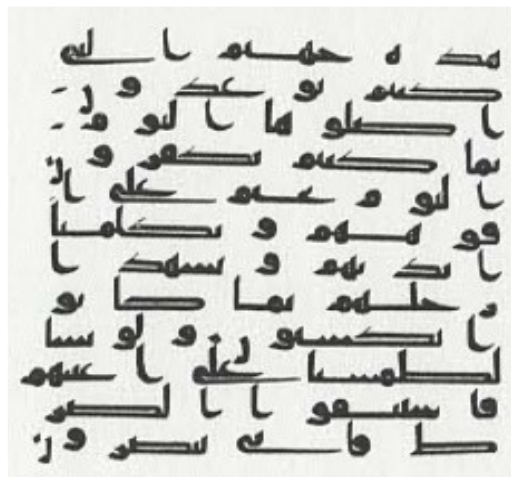 هذه جهنم التي
كنتم توعدون
اصلوها اليوم
بما كنتم تكفرون
اليوم نختم على ا
فوههم وتكلمنا
ايديهم وتشهد ا
رجلهم بما كانو
ا يكسبون ولو نشا
لطمسنا على اعينهم
فاستبقوا الصر
ط فانى يبصرون